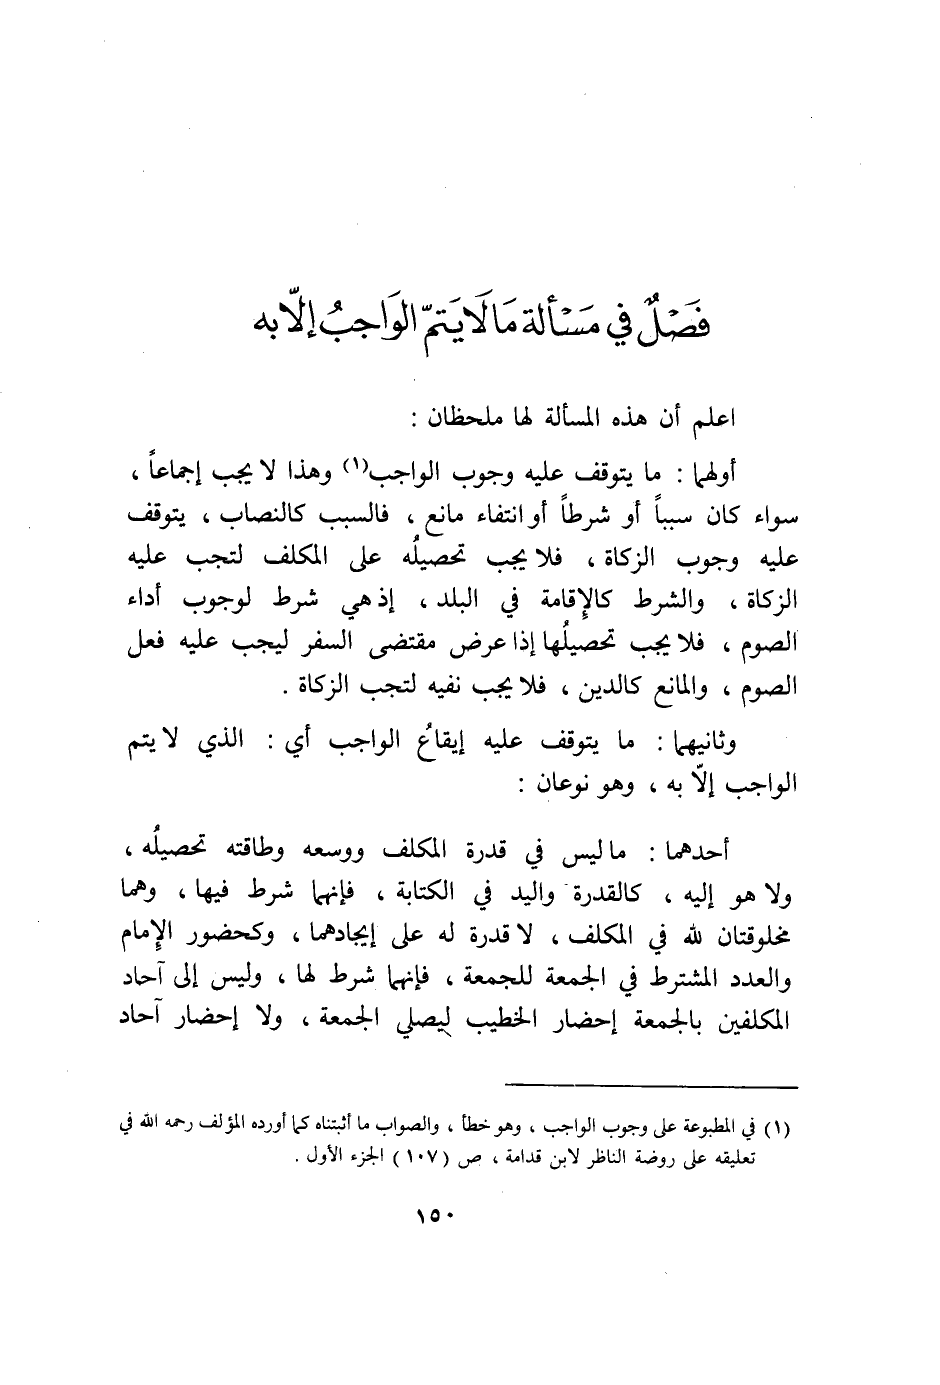 فَصْلٌ في مَسْألة مَا لَا يَتمّ الوَاجبُ إلّا به
اعلم أن هذه المسألة لها ملحظان :
أولهما : ما يتوقف عليه وجوب الواجب(١) وهذا لا يجب إجماعاً ،
سواء كان سبباً أو شرطاً أو انتفاء مانع ، فالسبب كالنصاب ، يتوقف
عليه وجوب الزكاة ، فلا يجب تحصيلُه على المكلف لتجب عليه
الزكاة ، والشرط كالإقامة في البلد ، إذ هي شرط لوجوب أداء
الصوم ، فلا يجب تحصيلُها إذا عرض مقتضى السفر ليجب عليه فعل
الصوم ، والمانع كالدين ، فلا يجب نفيه لتجب الزكاة .
وثانيهما : ما يتوقف عليه إيقاعُ الواجب أي : الذي لا يتم
الواجب إلّا به ، وهو نوعان :
أحدهما : ما ليس في قدرة المكلف ووسعه وطاقته تحصيلُه ،
ولا هو إليه ، كالقدرة واليد في الكتابة ، فإنهما شرط فيها ، وهما
مخلوقتان لله في المكلف ، لا قدرة له على إيجادهما ، وكحضور الإمام
والعدد المشترط في الجمعة للجمعة ، فإنهما شرط لها ، وليس إلى آحاد
المكلفين بالجمعة إحضار الخطيب ليصلي الجمعة ، ولا إحضار آحاد
(١) في المطبوعة على وجوب الواجب ، وهو خطأ ، والصواب ما أثبتناه كما أورده المؤلف رحمه الله في
تعليقه على روضة الناظر لابن قدامة ، ص (١٠٧) الجزء الأول .
١٥٠